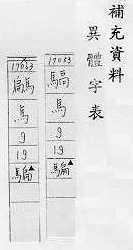 補充資料
異體字表
馬
9
19
騙▲
馬
9
19
騙▲